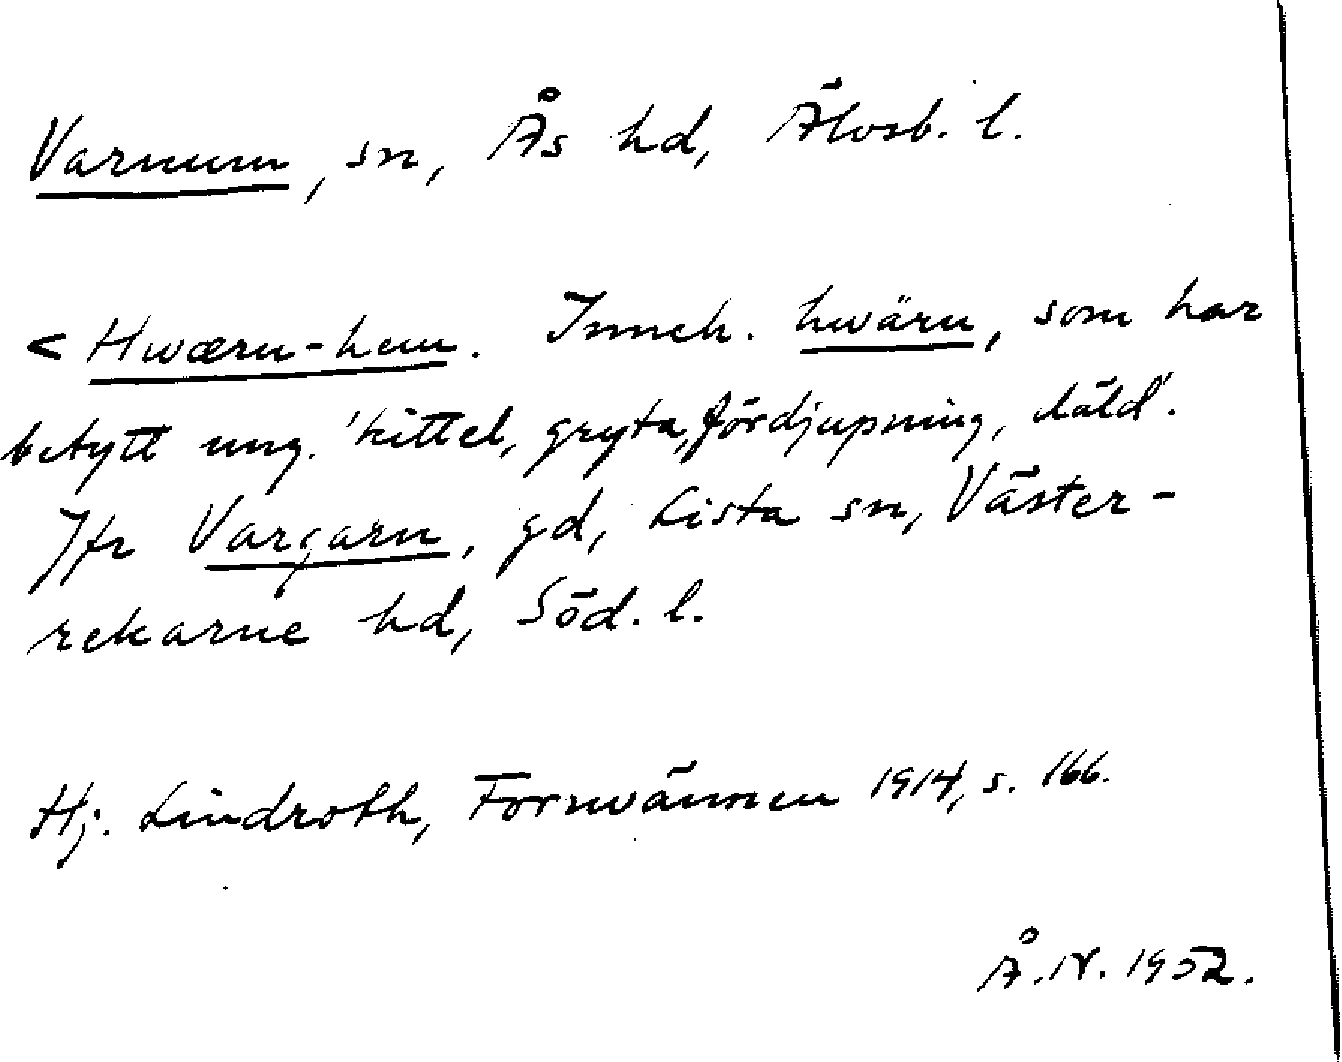 Varnum, sn, Ås hd, Älvsb. l.
< Hwærn-hem. Inneh. hwärn, som har
betytt ung. 'kittel, gryta, fördjupning, däld'.
Jfr Vargarn, gd, Lista sn, Väster-
rekarne hd, Söd. l.
Hj. Lindroth, Fornvännen 1914, s. 166.
Å.N. 1952.